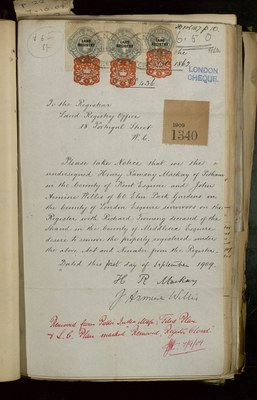 6 5 0
LAND REGISTRY
LAND REGISTRY
LAND REGISTRY
the
1862
LONDON
CHEQUE
To the Registrar
Land Registry Office
18 Portugal Street
W. C.
1340
Please take Notice that we the
undersigned Henry Ramsay Mackay of
in the County of Kent Esquire and John
Armine Willis of 60 Elm Park Gardens in
the County of London Esquire survivors on the
Register with Richard deceased of the
in the County of Middlesex Esquire
desire to remove the property registered under
the above Act and Number from the Register.
Dated this first day of September 1909.
H R Mackay
J Armine Willis
Removed from Index Map, Plan
Plan marked Removed. Closed.